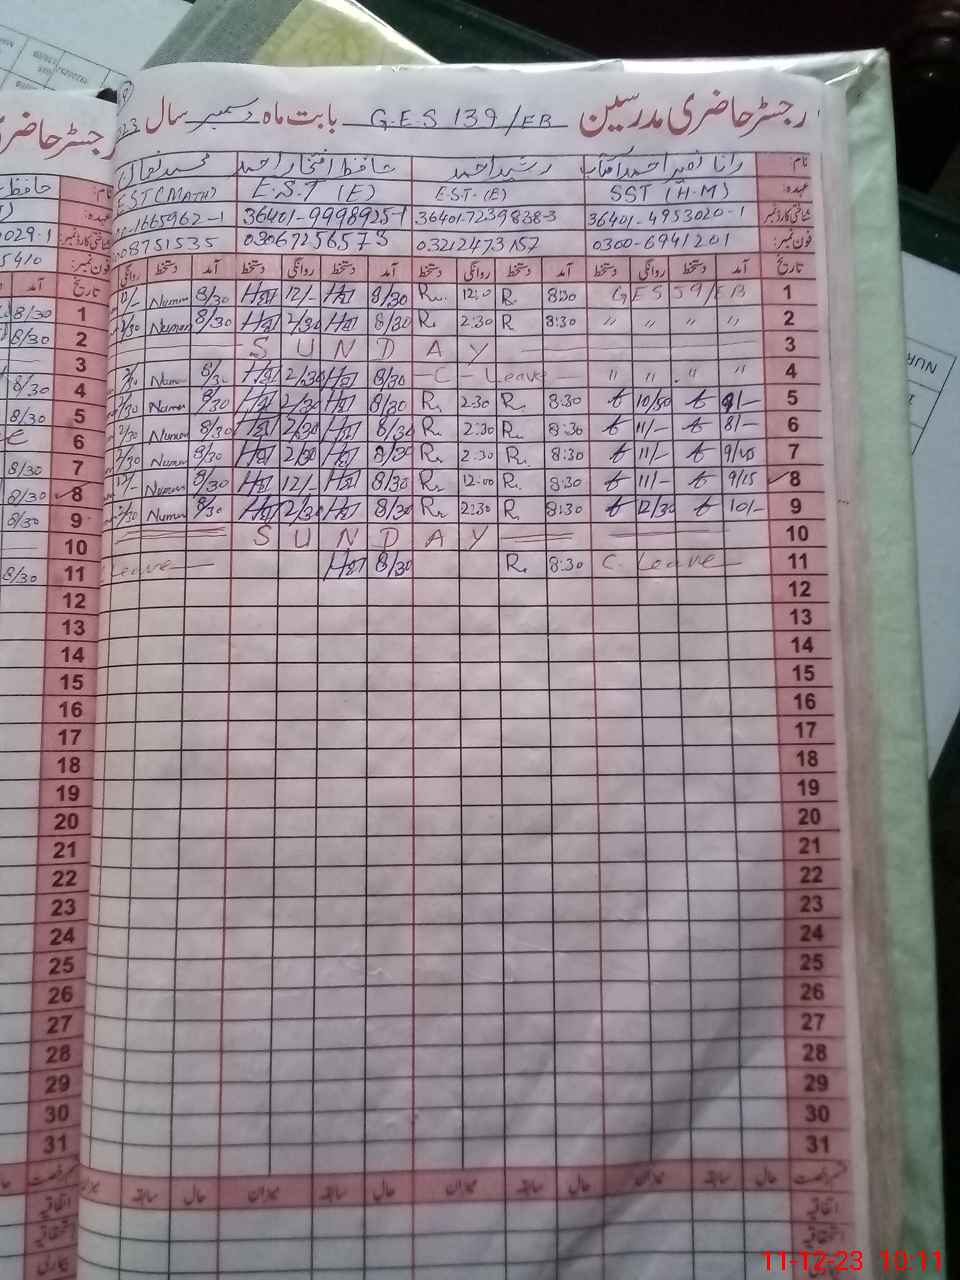 رجسٹر حاضری مدرسین G.E.S 139/EB بابت ماہ دسمبر سال
نام: رانا نصیر احمد رشید احمد حافظ افتخار احمد محمد نعمان
عہدہ: SST (H.M) E.S.T. (E) E.S.T (E) EST (MATH)
شناختی کارڈ نمبر: 36401-4953020-1 36401-7239838-3 36401-9998925-1 1665962-1
فون نمبر: 0300-6941201 03212473157 03067256573 008751535
تاریخ آمد دستخط روانگی دستخط آمد دستخط روانگی دستخط آمد دستخط روانگی دستخط آمد دستخط روانگی
1 GES 59/EB 8:30 R. 12:0 R. 8/30 12/- 8/30 Numan 12/-
2 " " " " 8:30 R 2:30 R. 8/30 2/30 8/30 Numan 2/30
3 S U N D A Y
4 " " " " C - Leave 8/30 2/30 8/30 Numan 2/30
5 9/- 10/50 8:30 R. 2:30 R. 8/30 2/30 8/30 Numan 2/30
6 8/- 11/- 8:30 R. 2:30 R. 8/30 2/30 8/30 Numan 2/30
7 11/- 8:30 R. 2:30 R. 8/30 2/30 8/30 Numan 2/30
8 9/15 11/- 8:30 R. 12:00 R. 8/30 12/- 8/30 Numan 12/-
9 10/- 12/30 8:30 R. 2:30 R. 8/30 2/30 8/30 Numan 2/30
10 S U N D A Y
11 C. Leave 8:30 R. 8/30 Leave
12
13
14
15
16
17
18
19
20
21
22
23
24
25
26
27
28
29
30
31
حال سابقہ میزان حال سابقہ میزان حال سابقہ میزان حال سابقہ میزان
اتفاقیہ
استحقاقیہ
بیماری
رجسٹر حاضری
نام: حافظ
عہدہ:
شناختی کارڈ نمبر: 029-1
فون نمبر: 5410
تاریخ آمد
1 8/30
2 8/30
3
4 8/30
5 8/30
6
7 8/30
8 8/30
9 8/30
10
11 8/30
12
13
14
15
16
17
18
19
20
21
22
23
24
25
26
27
28
29
30
31
اتفاقیہ
استحقاقیہ
بیماری
NUR
11-12-23 10:11